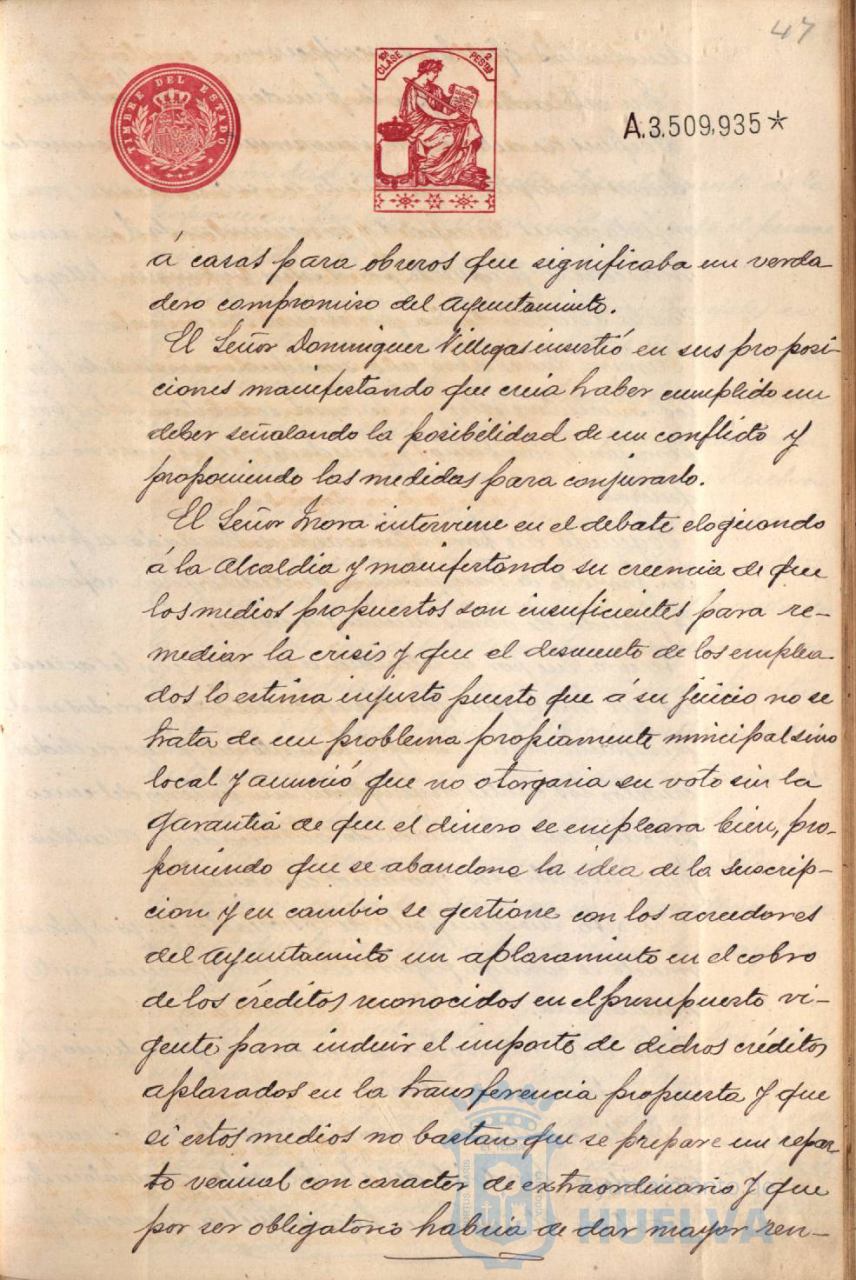 47
TIMBRE DEL ESTADO
10ª CLASE 2 PESETAS
A.3.509,935*
á casas para obreros que significaba un verda
dero compromiso del Ayuntamiento.
El Señor Dominguez Villegas insertió en sus proposi-
ciones manifestando que creia haber cumplido un
deber señalando la posibilidad de un conflicto y
proponiendo las medidas para conjurarlo.
El Señor Mora interviene en el debate elogiando
á la Alcaldia y manifestando su creencia de que
los medios propuestos son insuficientes para re-
mediar la crisis y que el descuento de los emplea-
dos lo estima injusto puesto que á su juicio no se
trata de un problema propiamente municipal sino
local y anunció que no otorgaria su voto sin la
garantia de que el dinero se empleara bien, pro-
poniendo que se abandone la idea de la suscrip-
cion y en cambio se gestione con los acreedores
del Ayuntamiento un aplazamiento en el cobro
de los créditos reconocidos en el presupuesto vi-
gente para incluir el importe de dichos créditos
aplazados en la transferencia propuesta y que
si estos medios no bastan que se prepare un repar
to vecinal con caracter de extraordinario y que
por ser obligatorio habria de dar mayor ren-
HUELVA